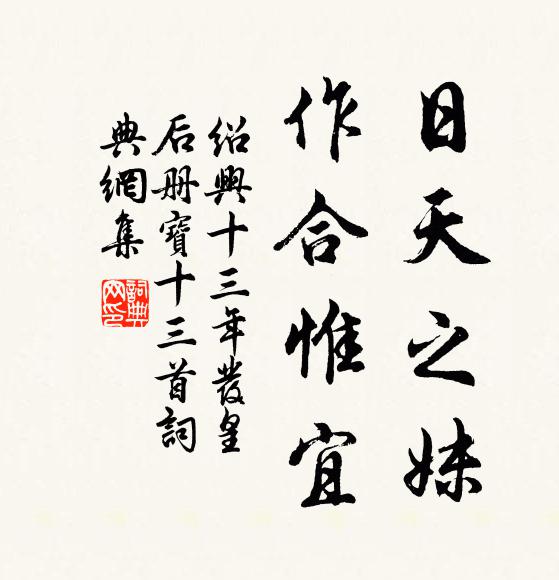 日天之妹
作合惟宜
紹興十三年發皇
后册寶十三首詞
典網集
詞典網印